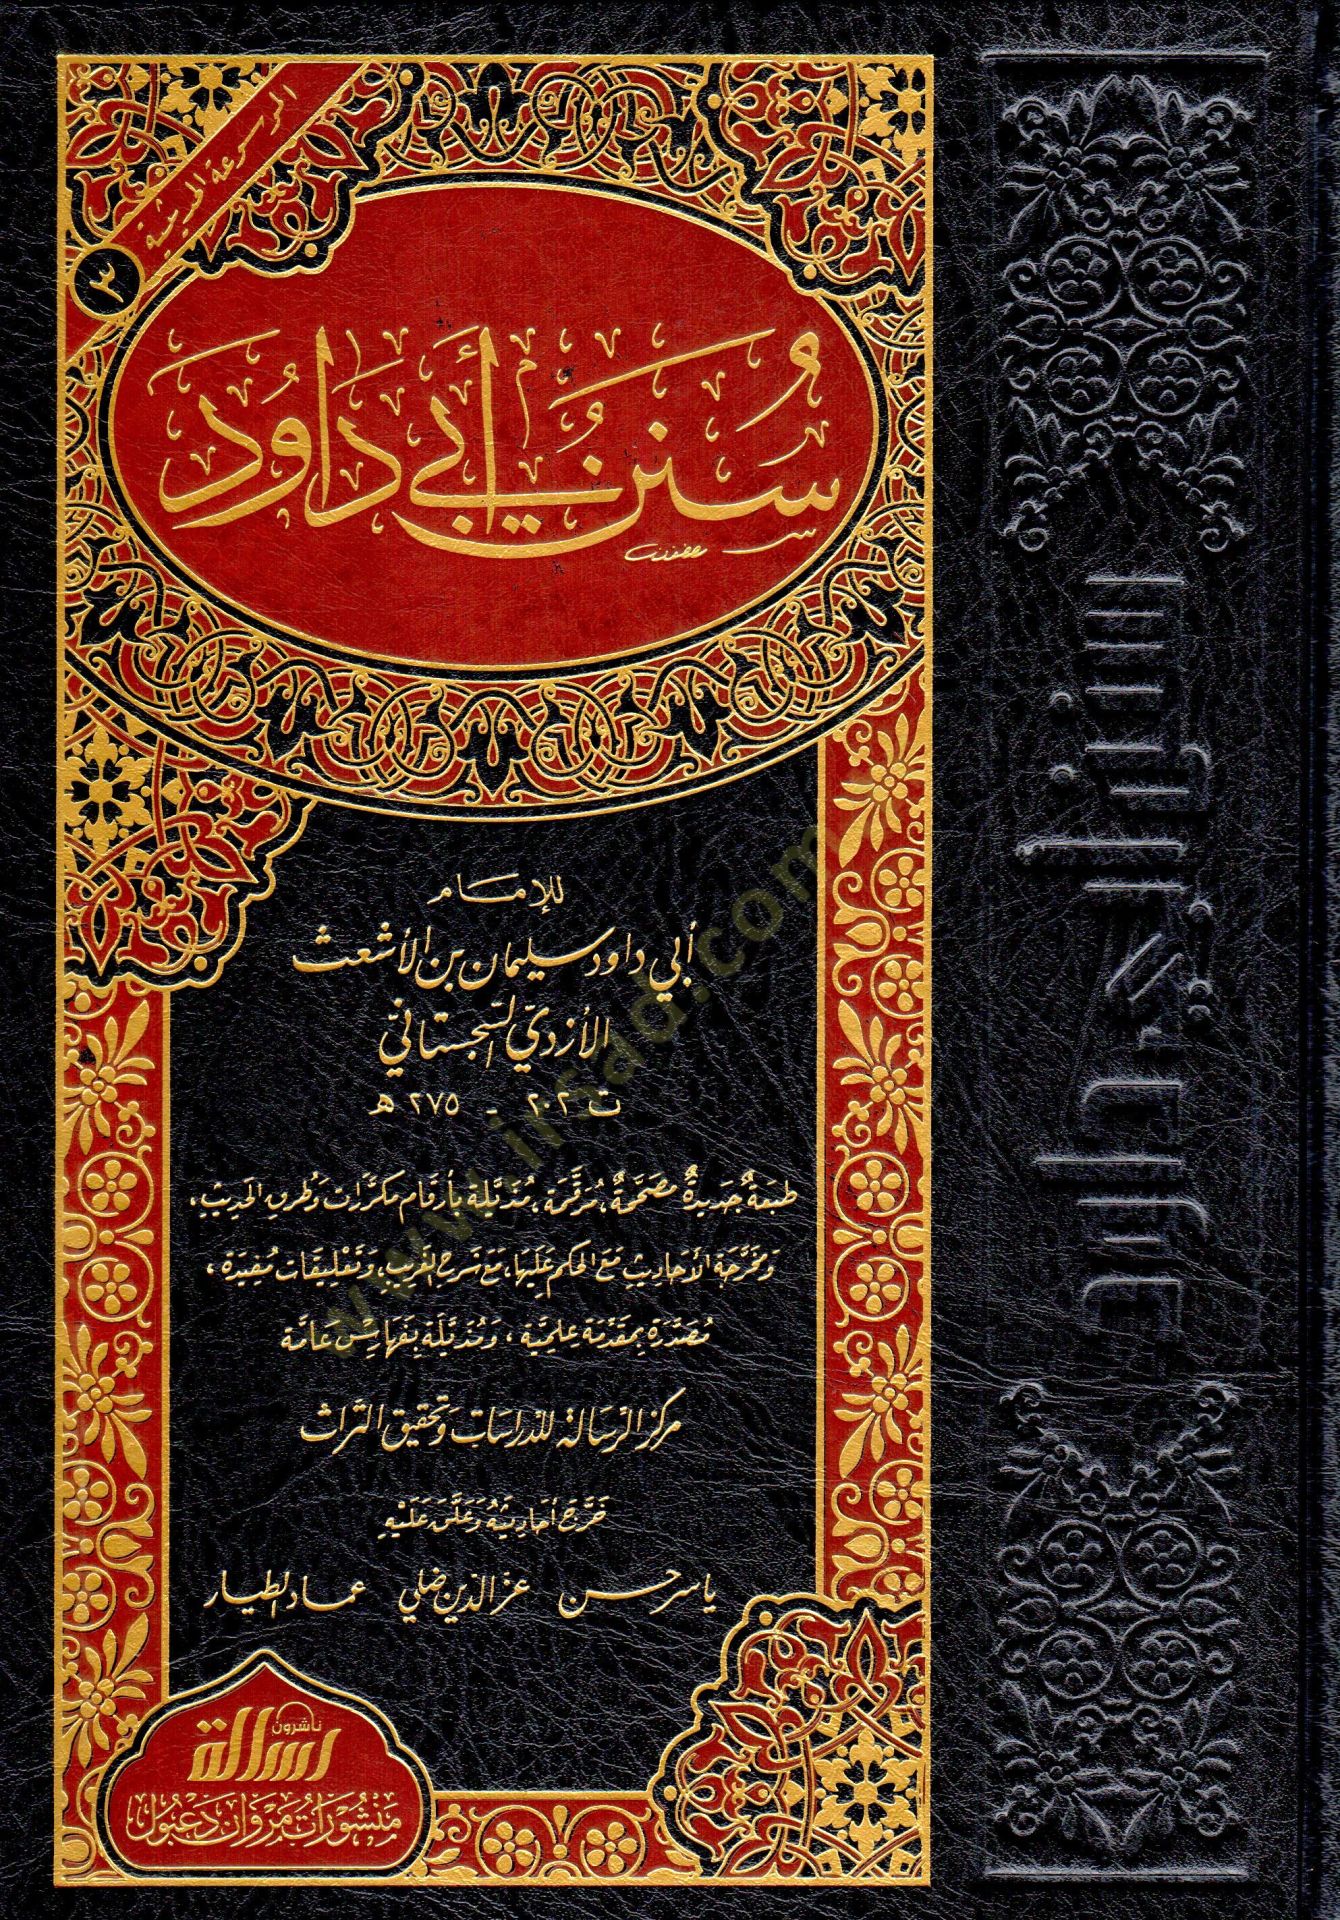 الموسوعة الحديثية
٣
سُنَنُ أَبِي دَاوُد
للإمام
أبي داود سليمان بن الأشعث
الأزديّ السجستانيّ
ت ٢٠٢ - ٢٧٥ هـ
طبعةٌ جديدةٌ مصحَّحةٌ، مُرقَّمة، مُذيَّلة بأرقام مكرَّرات وَطُرقِ الحديثِ،
وَمخرَّجة الأحاديثِ مَعَ الحكم عَلَيها، مَع شَرح الغَريبِ، وَتَعْليقَات مُفِيدَة،
مُصَدَّرَة بِمقَدّمَة عِلميَّة، وَمُذيَّلَة بِفَهارِس عَامَّة
مركز الرسالة للدراسات وتحقيق التراث
خَرَّجَ أحَادِيثَهُ وَعَلَّقَ عَلَيْهِ
ياسر حسن عز الدين ضلي عماد الطيار
ناشرون
رسالة
مَنْشُورَاتُ مَرْوَان دَعْبُول
www.irsad.com